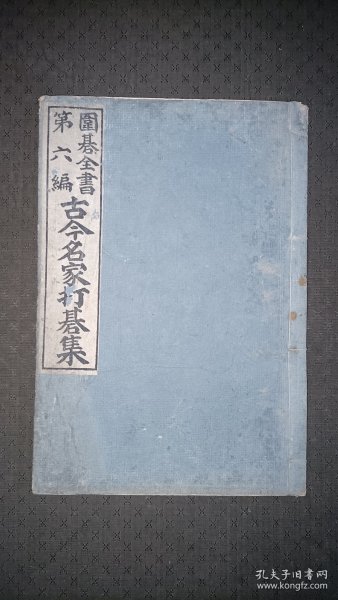 圍碁全書
第六編
古今名家打碁集
孔夫子旧书网
www.kongfz.com